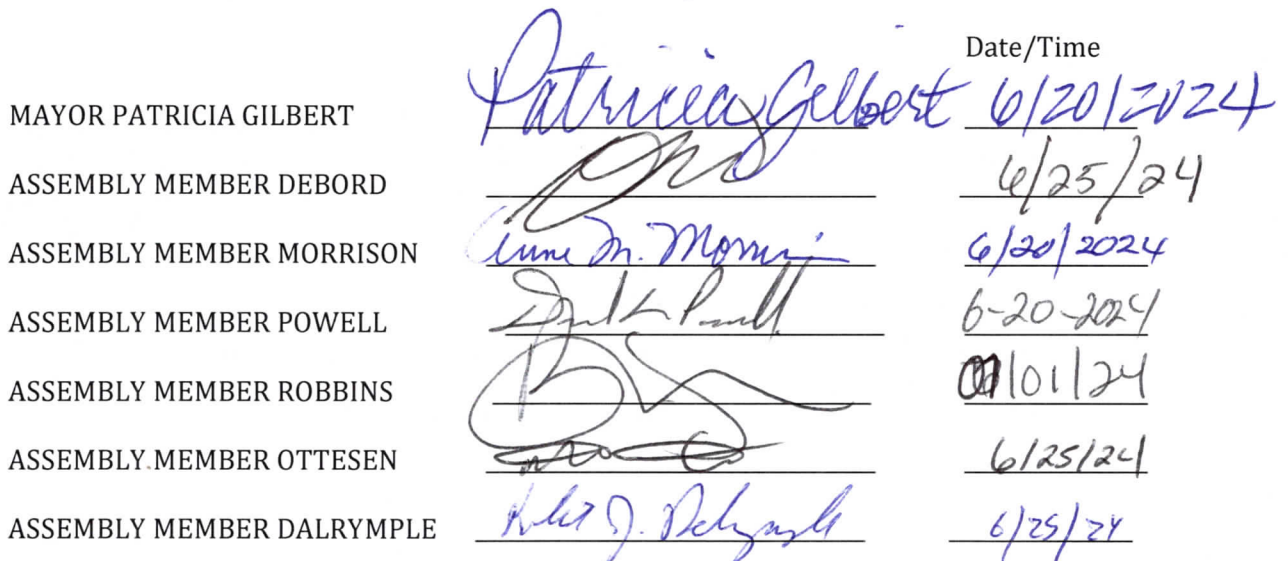 Date/Time
MAYOR PATRICIA GILBERT Patricia Gilbert 6/20/2024
ASSEMBLY MEMBER DEBORD 6/25/24
ASSEMBLY MEMBER MORRISON Anne M. Morrison 6/20/2024
ASSEMBLY MEMBER POWELL 6-20-2024
ASSEMBLY MEMBER ROBBINS /01/24
ASSEMBLY MEMBER OTTESEN 6/25/24
ASSEMBLY MEMBER DALRYMPLE Robert J. Dalrymple 6/25/24